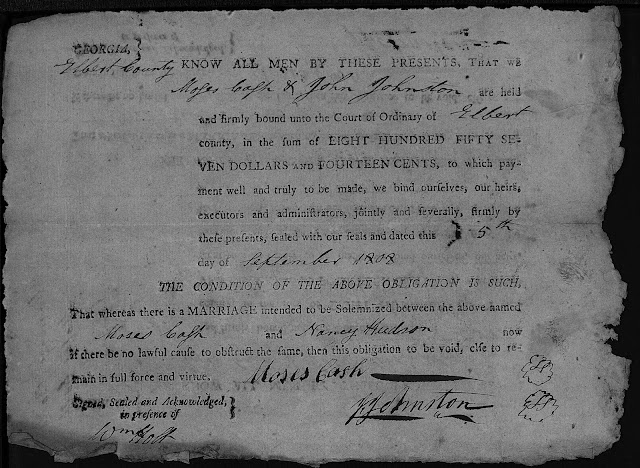 GEORGIA,
Elbert County } KNOW ALL MEN BY THESE PRESENTS, THAT WE
Moses Cash & John Johnston are held
and firmly bound unto the Court of Ordinary of Elbert
county, in the sum of EIGHT HUNDRED FIFTY SE-
VEN DOLLARS AND FOURTEEN CENTS, to which pay-
ment well and truly to be made, we bind ourselves, our heirs,
executors and administrators, jointly and severally, firmly by
these presents, sealed with our seals and dated this } 5th
day of September 1808
THE CONDITION OF THE ABOVE OBLIGATION IS SUCH,
That whereas there is a MARRIAGE intended to be Solemnized between the above named
Moses Cash and Nancy Hudson now
if there be no lawful cause to obstruct the same, then this obligation to be void, else to re-
main in full force and virtue. Moses Cash
Signed, Sealed and Acknowledged, }
in presence of J Johnston
Wm